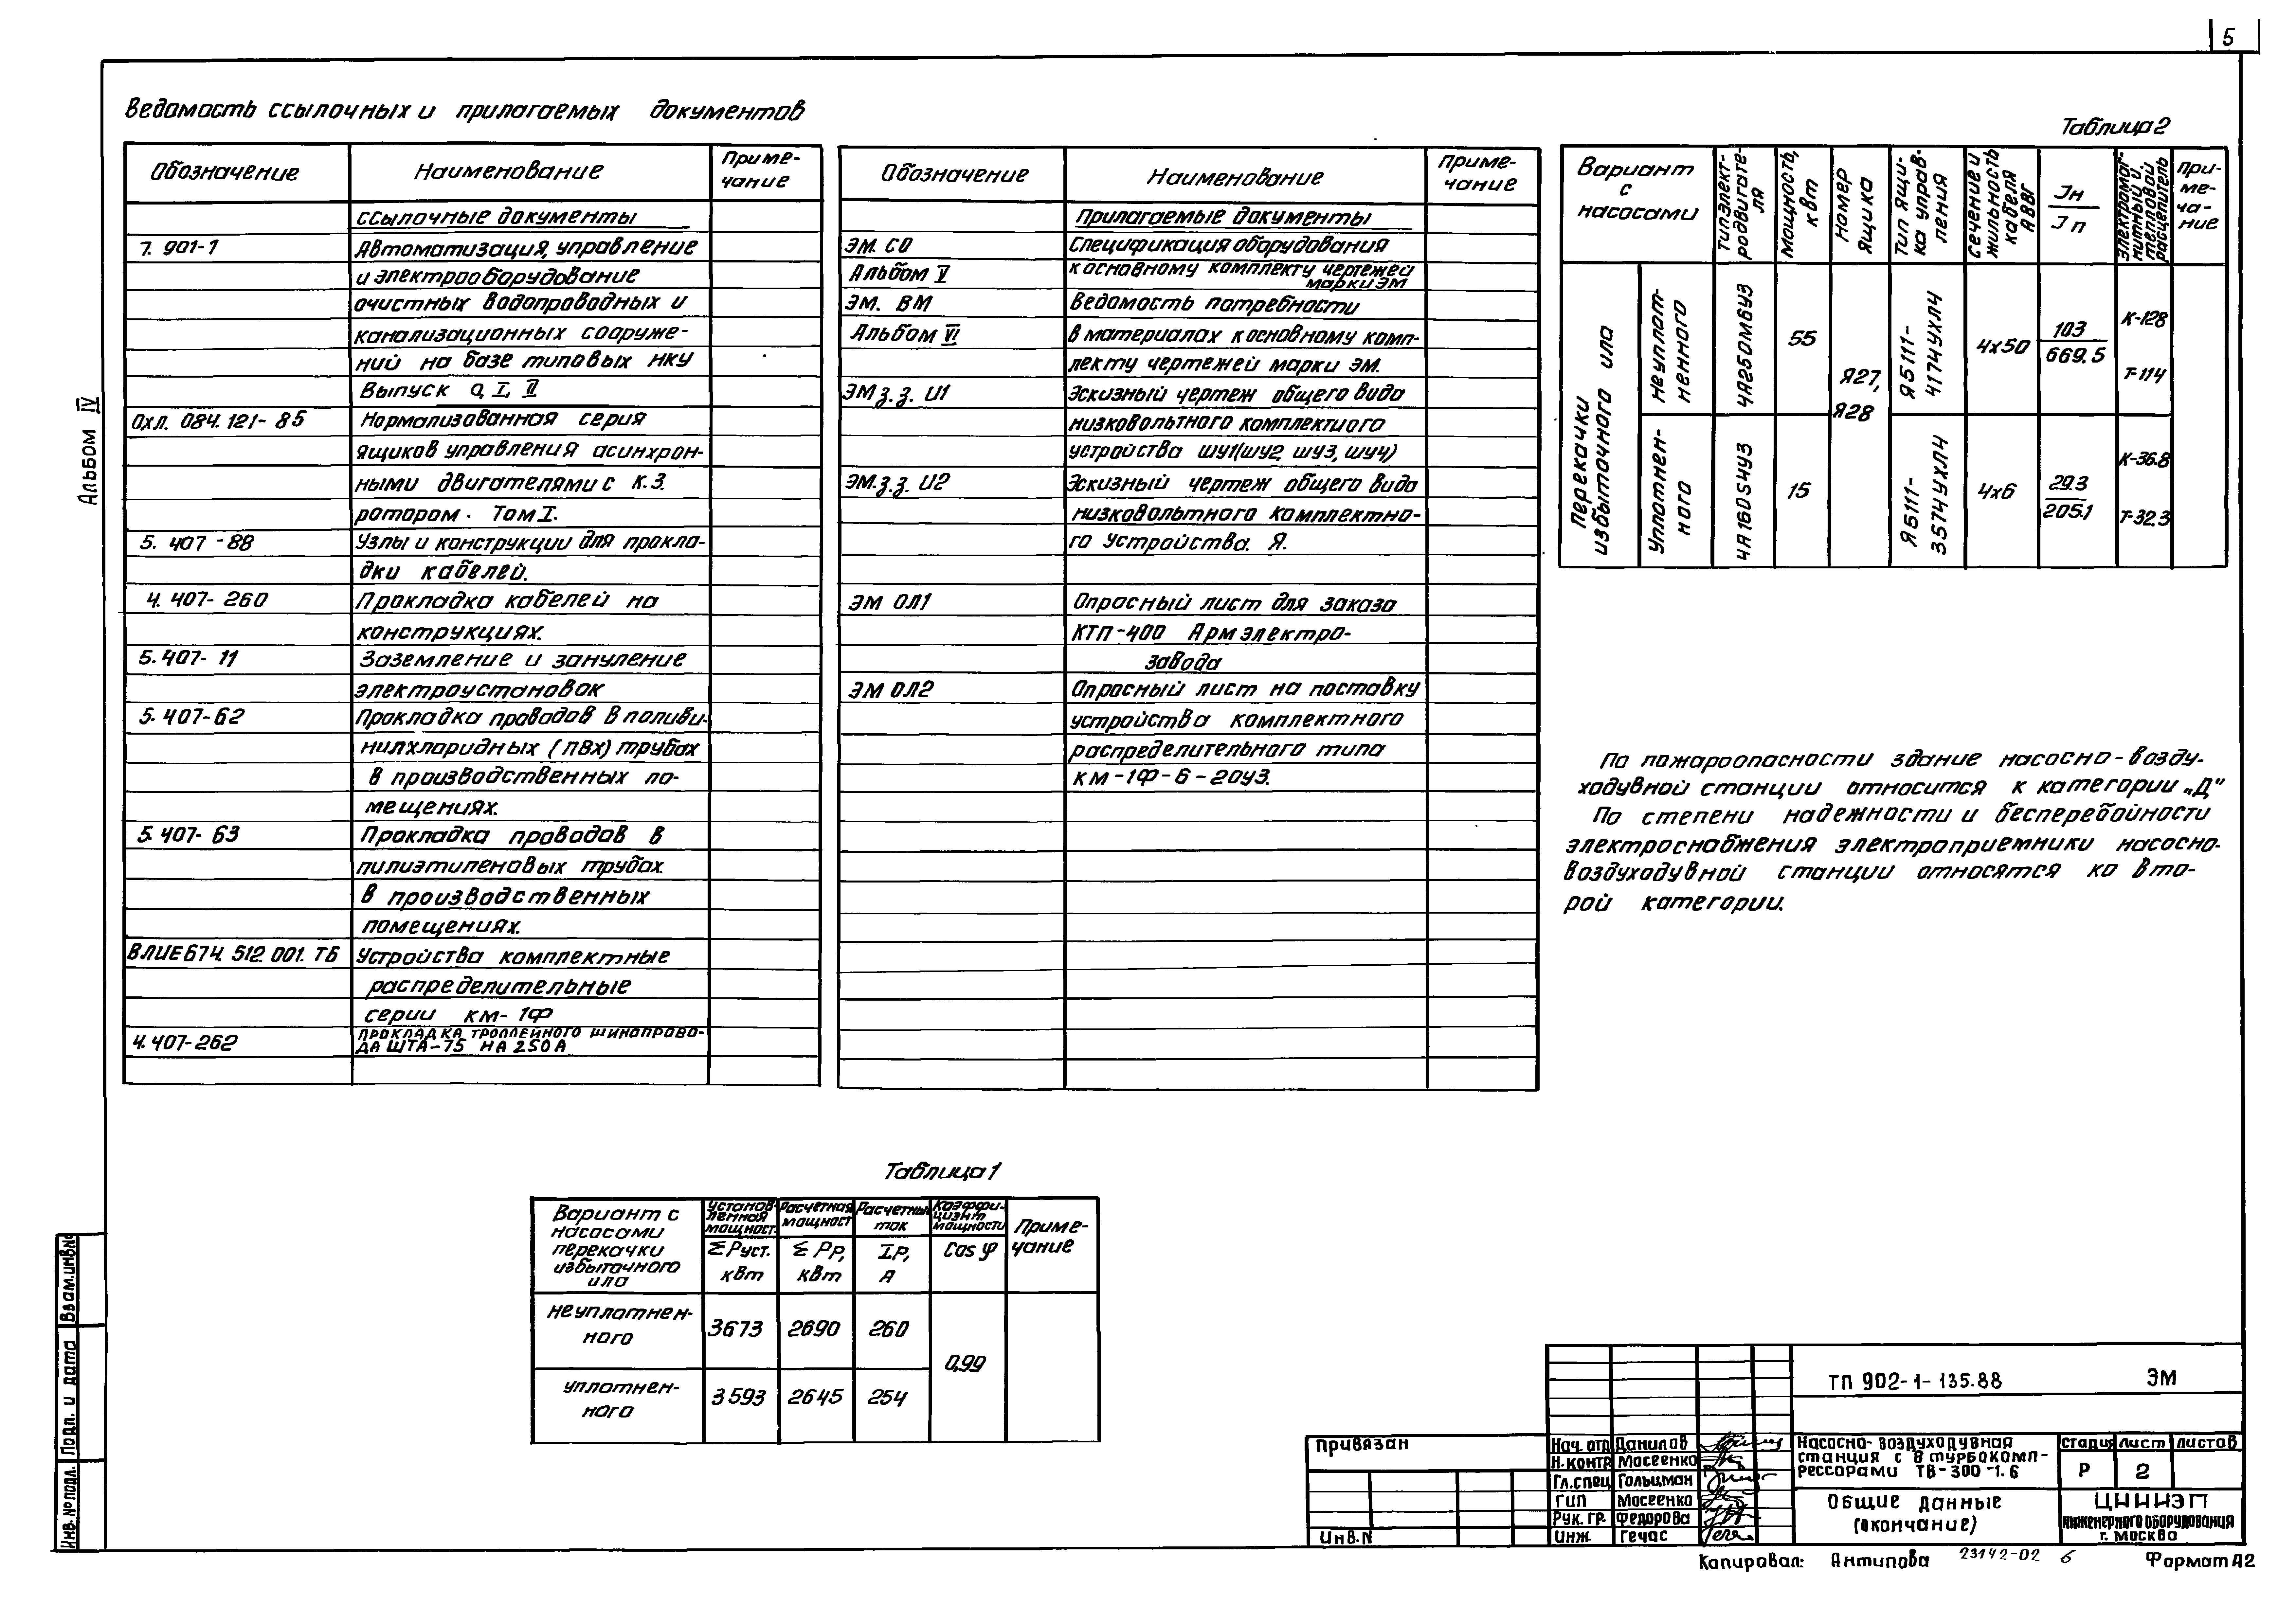 5
Ведомость ссылочных и прилагаемых документов
Обозначение
Наименование
Приме-
чание
ссылочные документы
7. 901-1
Автоматизация, управление
и электрооборудование
очистных водопроводных и
канализационных сооруже-
ний на базе типовых НКУ
Выпуск 0, I, II
ОХЛ. 084. 121-85
Нормализованная серия
ящиков управления асинхрон-
ными двигателями с к.з.
ротором. Том I.
5. 407-88
Узлы и конструкции для прокла-
дки кабелей.
4. 407-260
Прокладка кабелей на
конструкциях.
5. 407-11
Заземление и зануление
электроустановок
5. 407-62
Прокладка проводов в поливи-
нилхлоридных (ПВХ) трубах
в производственных по-
мещениях.
5. 407-63
Прокладка проводов в
пилиэтиленовых трубах.
в производственных
помещениях.
ВЛИЕ674. 512. 001. ТБ
Устройства комплектные
распределительные
серии КМ-1Ф
4. 407-262
Прокладка троллейного шинопрово-
да ШТА-75 на 250А
Обозначение
Наименование
Приме-
чание
Прилагаемые документы
ЭМ. СО
Спецификация оборудования
Альбом V
к основному комплекту чертежей
марки ЭМ
ЭМ. ВМ
Ведомость потребности
Альбом VI
в материалах к основному комп-
лекту чертежей марки ЭМ.
ЭМ з.з. И1
Эскизный чертеж общего вида
низковольтного комплектного
устройства ШУ1(ШУ2, ШУ3, ШУ4)
ЭМ. з.з. И2
Эскизный чертеж общего вида
низковольтного комплектно-
го устройства. Я.
ЭМ ОЛ1
Опросный лист для заказа
КТП-400 Армэлектро-
завода
ЭМ ОЛ2
Опросный лист на поставку
устройства комплектного
распределительного типа
КМ-1Ф-6-20У3.
Таблица 2
Вариант
с
насосами
Тип элект-
родвигате-
ля
Мощность,
квт
Номер
ящика
Тип ящи-
ка управ-
ления
Сечение и
жильность
кабеля
АВВГ
Iн
Iп
Электромаг-
нитный и
тепловой
расцепитель
При-
ме-
ча-
ние
Перекачки
избыточного ила
неуплот-
ненного
4А250М6У3
55
Я27,
Я28
Я5111-
4174УХЛ4
4х50
103
669.5
К-128
Т-114
Уплотнен-
ного
4А160S4У3
15
Я5111-
3574УХЛ4
4х6
29.3
205.1
К-36.8
Т-32.3
По пожароопасности здание насосно-возду-
ходувной станции относится к категории „Д"
По степени надежности и бесперебойности
электроснабжения электроприемники насосно-
воздуходувной станции относятся ко вто-
рой категории.
Таблица 1
Вариант с
насосами
перекачки
избыточного
ила
Установ-
ленная
мощност.
Σ Руст.
квт
Расчетная
мощност
Σ Рр,
квт
Расчетный
ток
Iр,
А
Коэффи-
циэнт
мощности
Cos φ
Приме-
чание
неуплотнен-
ного
3673
2690
260
0,99
уплотнен-
ного
3593
2645
254
Альбом IV
Взам.инв№
Подп. и дата
Инв.№подл.
Привязан
Инв.N
Нач. отд Данилов
Н.контр Мосеенко
Гл.спец Гольцман
Гип Мосеенко
Рук. гр. Федорова
Инж. Гечас
ТП 902-1-135.88
ЭМ
Насосно-воздуходувная
станция с 8 турбокомп-
рессорами ТВ-300-1.6
стадия лист листов
Р 2
Общие данные
(окончание)
ЦНИИЭП
инженерного оборудования
г. Москва
Копировал: Антипова 23142-02 6 Формат А2